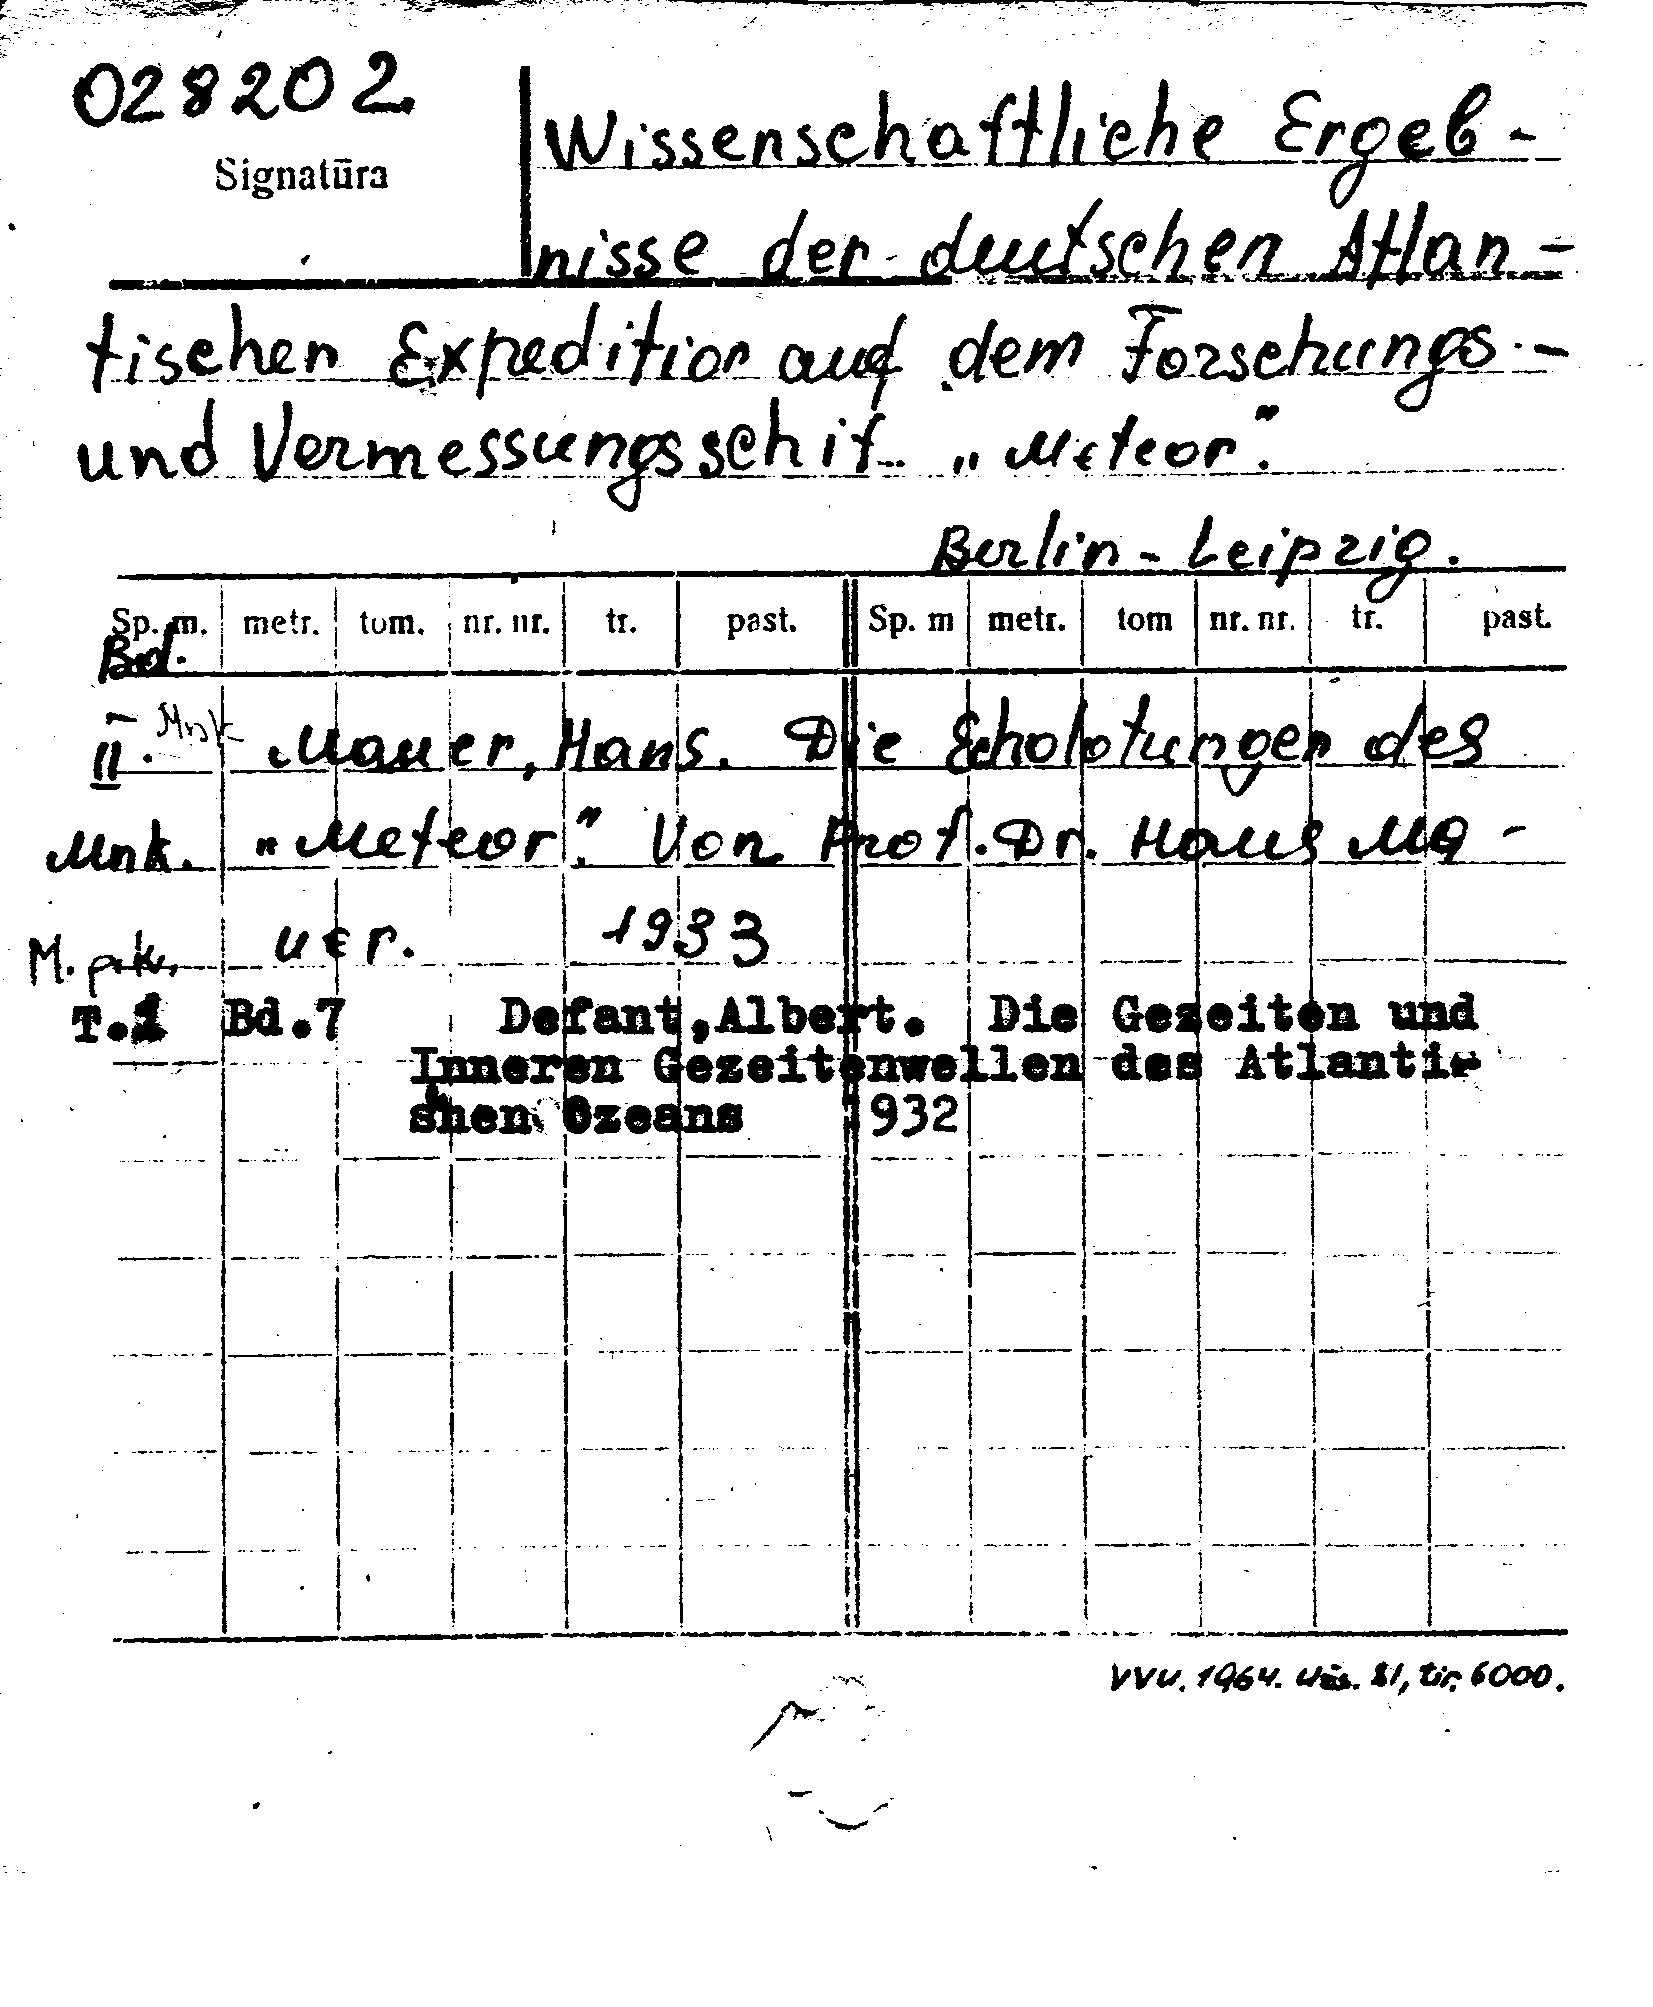 028202
Signatūra
Wissenschaftliche Ergeb-
nisse der deutschen Atlan-
tischen Expedition auf dem Forschungs-
und Vermessungsschif.. „Meteor".
Berlin-Leipzig.
Sp. m. metr. tom. nr. nr. tr. past. Sp. m metr. tom nr. nr. tr. past.
Bd.
II. Mnk Mauer, Hans. Die Echolotungen des
Mnk. "Meteor". Von Prof. Dr. Haus Ma-
uer. 1933
T.1 Bd.7 Defant,Albert. Die Gezeiten und
Inneren Gezeitenwellen des Atlanti-
shen Ozeans 1932
VVU. 1964. Uźs. 81, tir. 6000.